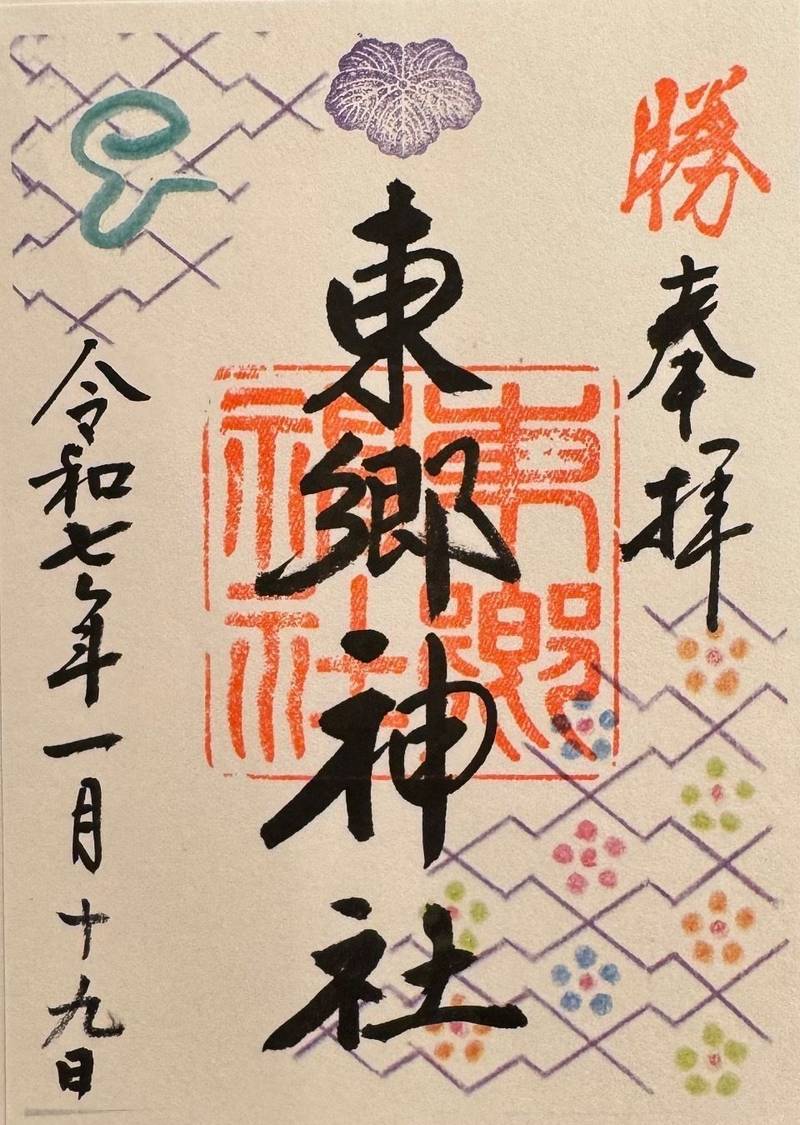 勝
奉拝
東郷神社
東郷神社
令和七年一月十九日